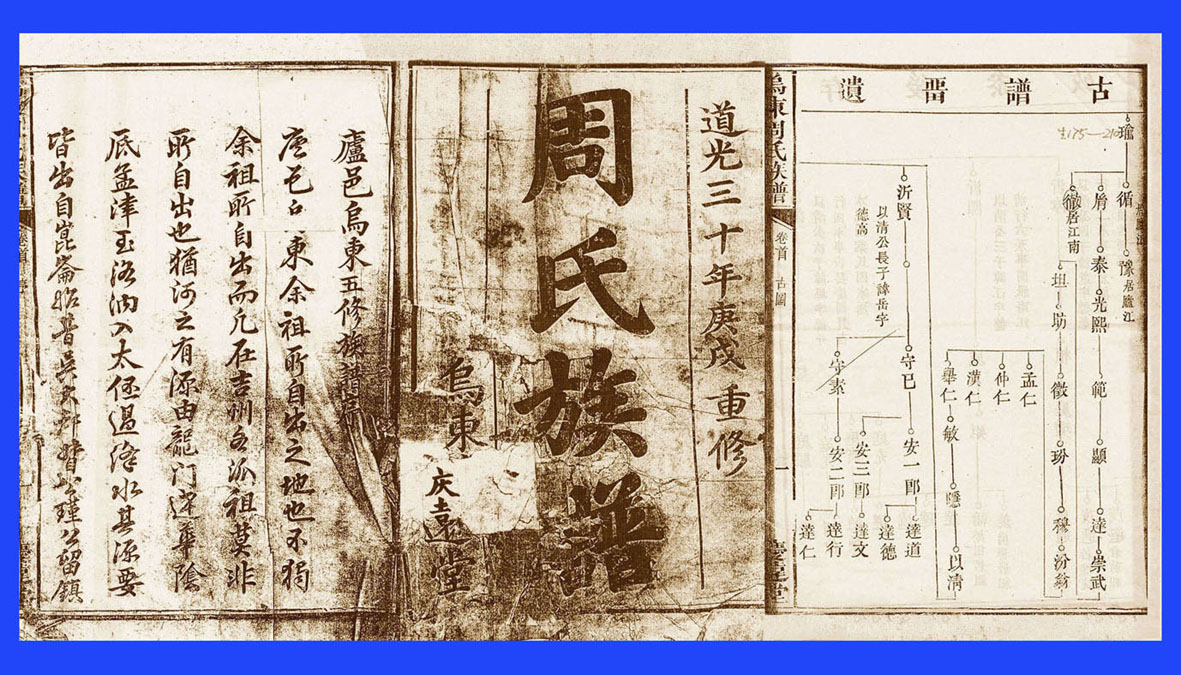 古譜畱遺
瑜
175—210
循
豫居廬江
胤
泰
光熙
範
顯
達
崇武
徽居江南
坦
助
徵
玢
穆
汾翁
孟仁
仲仁
漢仁
舉仁
敏
隱
以清
沂賢
以清公長子諱岳字
德高
守已
安一郎
達道
達德
安三郎
達文
守素
安二郎
達行
達仁
烏東周氏族譜
卷首 古圖
一
慶遠堂
道光三十年庚戌重修
周氏族譜
烏東
庆遠堂
廬邑烏東五修族譜序
邑 東余祖所自出之地也不獨
余祖所自出而凡在吉州各派祖莫非
所自出也猶河之有源由龍門達華陰
底孟津至洛汭入大伾過洚水其源要
皆出自崑崙始昔吳大都督公瑾公留鎮